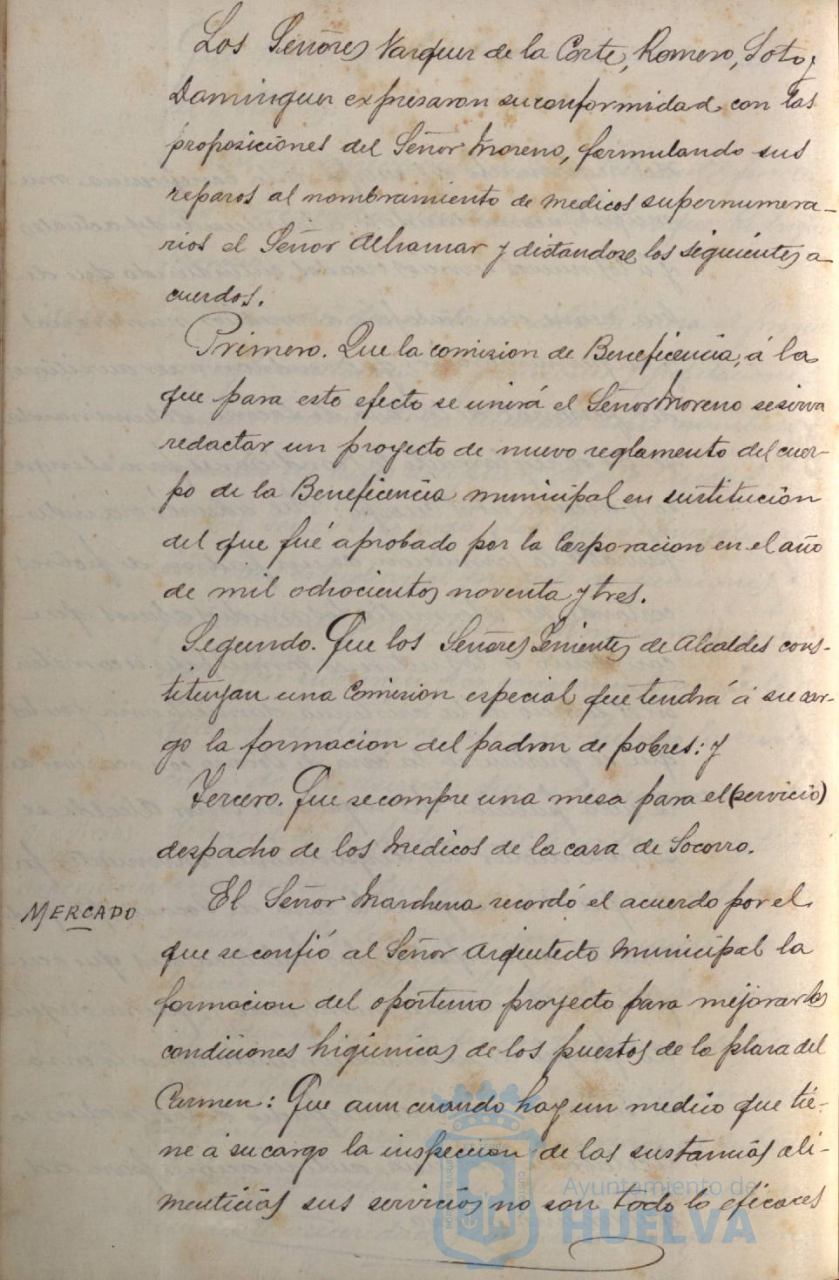 Los Señores Vazquez de la Corte, Romero, Soto y
Dominguez expresaron su conformidad con las
proposiciones del Señor Moreno, formulando sus
reparos al nombramiento de medicos supernumera-
rios el Señor Alhamar y dictandose los siguientes a
cuerdos.
Primero. Que la comision de Beneficencia, á la
que para esto efecto se unirá el Señor Moreno se sirva
redactar un proyecto de nuevo reglamento del cuer-
po de la Beneficencia municipal en sustitución
del que fué aprobado por la Corporacion en el año
de mil ochocientos noventa y tres.
Segundo. Que los Señores Tenientes de Alcaldes cons-
tituyan una Comision especial que tendrá á su car-
go la formacion del padron de pobres: y
Tercero. Que se compre una mesa para el (servicio)
despacho de los Medicos de la casa de Socorro.
MERCADO
El Señor Marchena recordó el acuerdo por el
que se confió al Señor Arquitecto Municipal la
formacion del oportuno proyecto para mejorar las
condiciones higienicas de los puestos de la plaza del
Carmen: Que aun cuando hay un medico que tie-
ne á su cargo la inspeccion de las sustancias ali-
menticias sus servicios no son todo lo eficaces
Ayuntamiento de
HUELVA